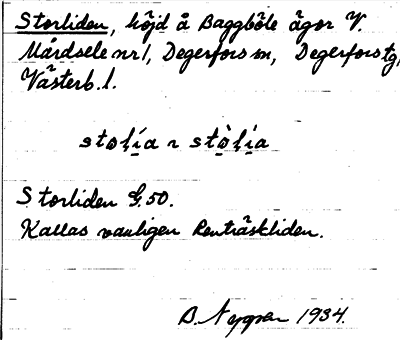 Storliden, höjd å Baggböle ägor V.
Mårdsele nr 1, Degerfors sn, Degerfors tg,
Västerb. l.
stoḷía ~ stòḷía
Storliden G.50.
Kallas vanligen Renträskliden.
B. 1934.